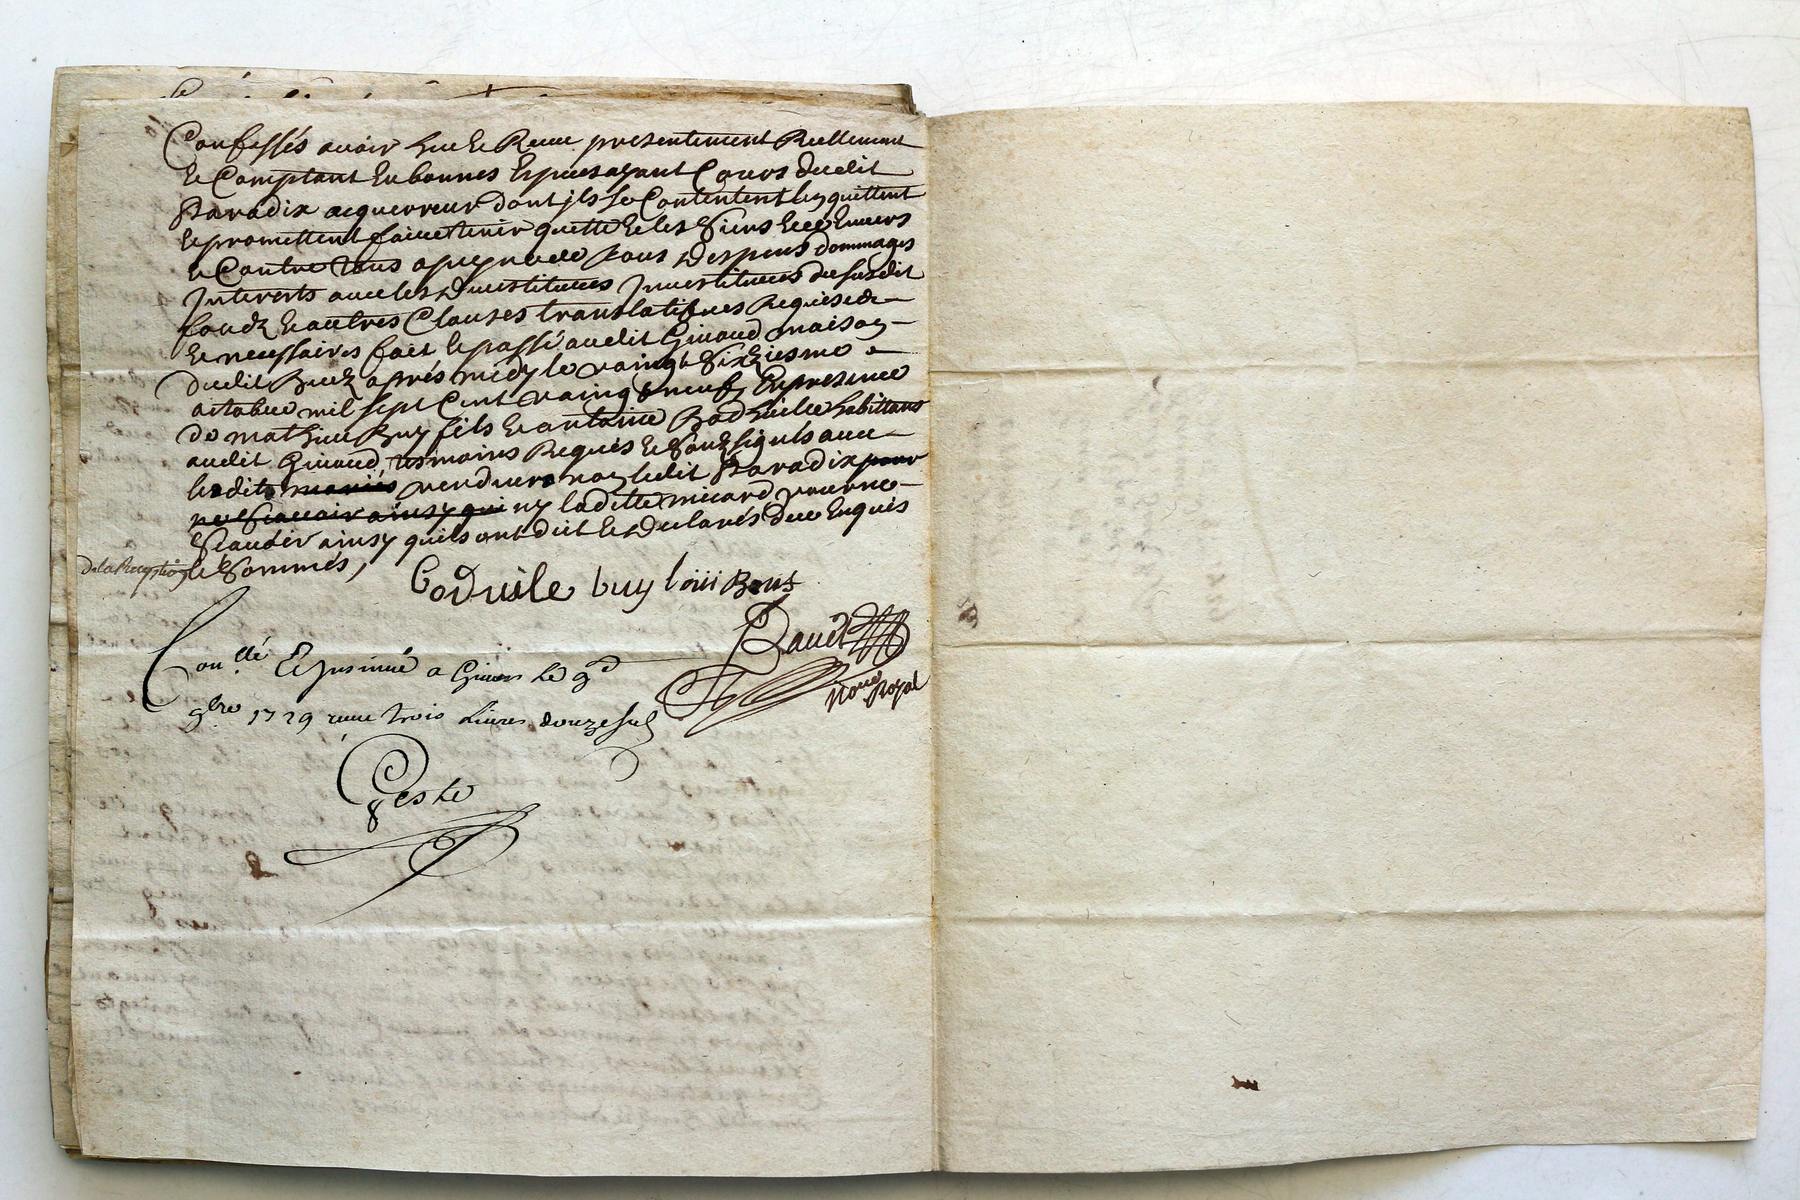 Confessés avoir heu et Receu presentement Reellement
et Comptant en bonnes Especes ayant Cours dudit
Paradix acquerreur dont jls se Contentent len quittent
et promettent faire tenir quitte et les Siens Envers
et Contre tous a peyne de tous despens dommages
Interets avec les devestitures Investitures du susdit
fondz et autres Clauses translatifves Requises
et necessaires fait et passé audit Givord maison
dudit apres midy le vaingt Sixziesme
octobre mil sept Cent vaingt neuf En presence
de mathieu Buy fils et antoine Boduile habittans
audit Givord tesmoins Requis et Soubsignés avec
lesdits mariés vendeurs non ledit Paradix pour
ne Scavoir ainsy que ny laditte micard pour ne
Scavoir ainsy quils ont dit et declarés de ce Enquis
de la Reception et Sommés,
Boduile buy loüi
Baud
Con.llé Et Jnsinué a Givors le 9e
9bre 1729 receu trois Livres douze sols
No.re Royal
Geste